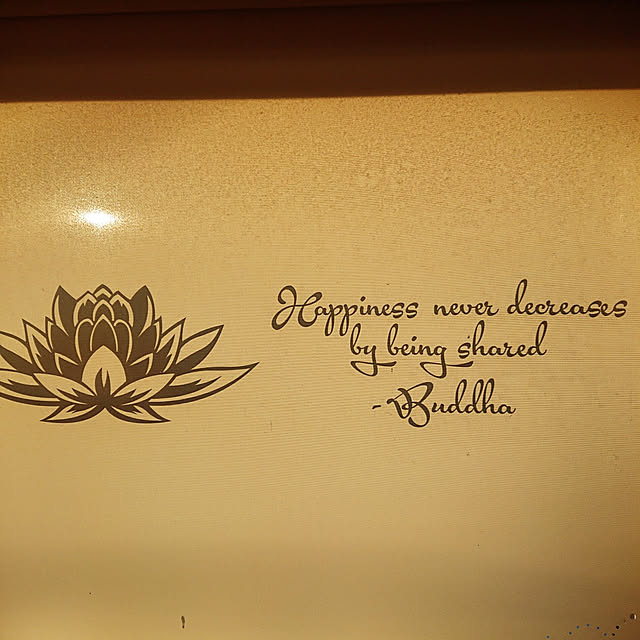 Happiness never decreases
by being shared
-Buddha